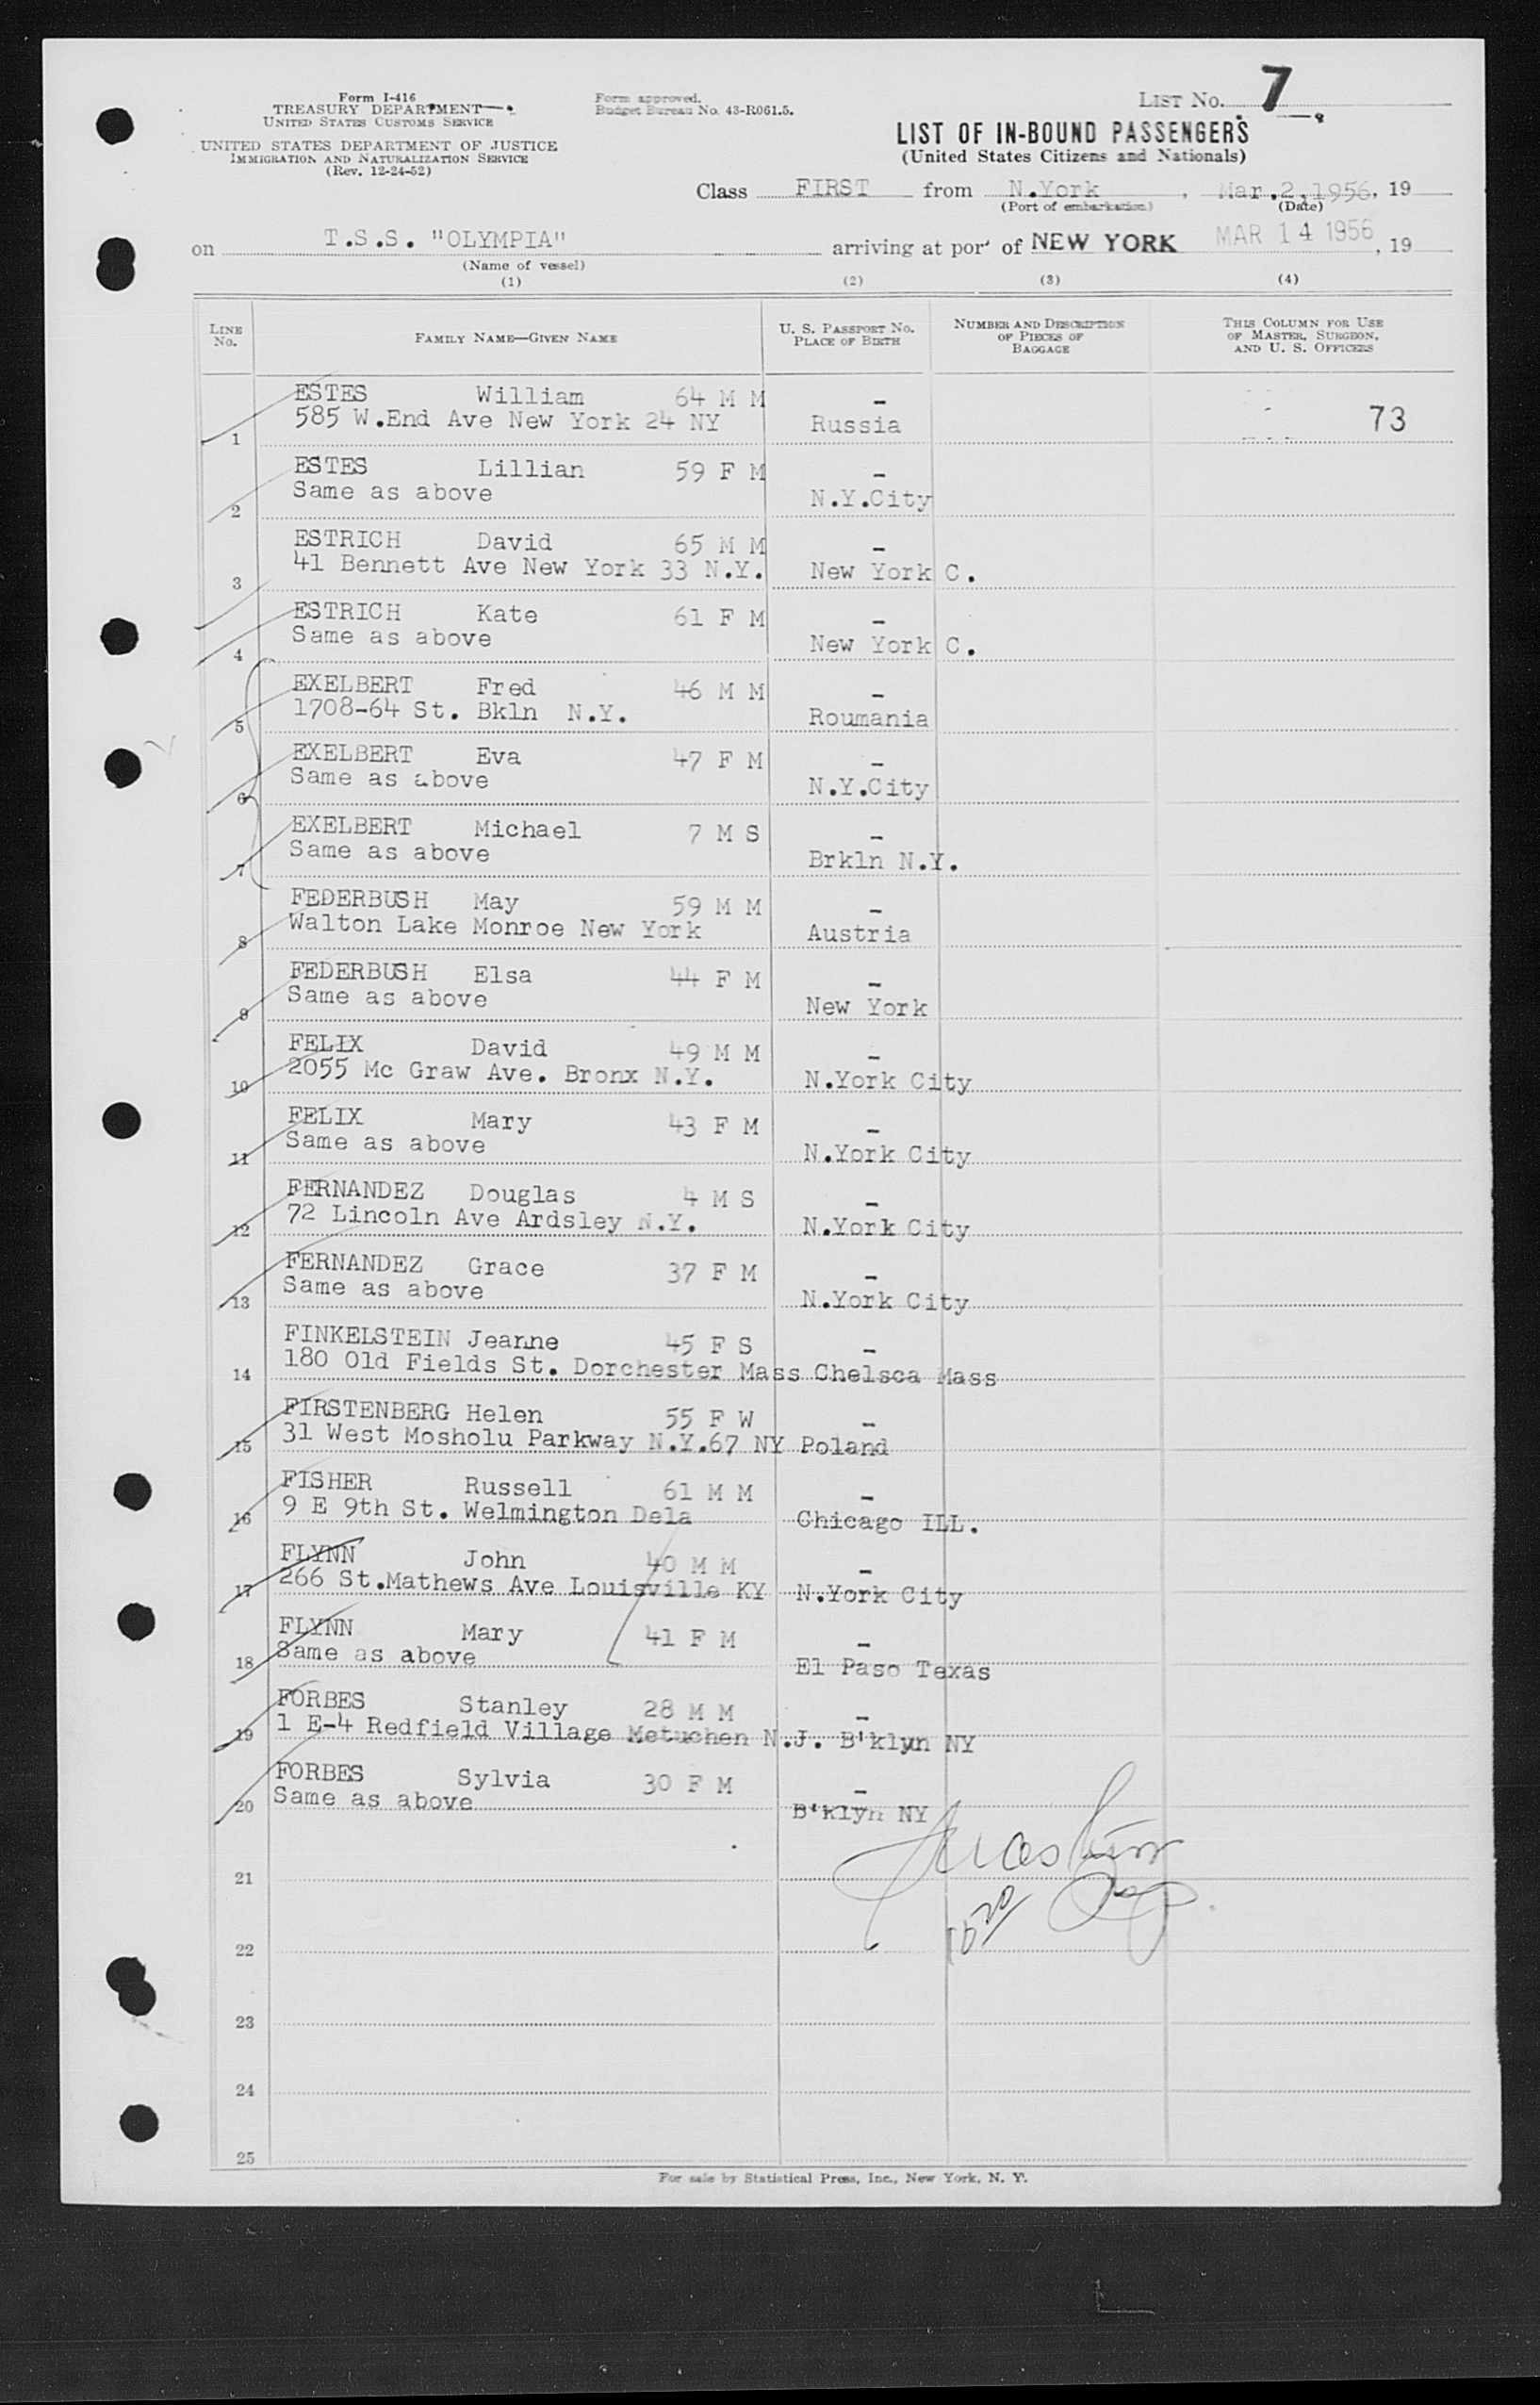 Form I-416
TREASURY DEPARTMENT
UNITED STATES CUSTOMS SERVICE
UNITED STATES DEPARTMENT OF JUSTICE
IMMIGRATION AND NATURALIZATION SERVICE
(Rev. 12-24-52)
Form approved.
Budget Bureau No. 43-R061.5.
LIST NO. 7
LIST OF IN-BOUND PASSENGERS
(United States Citizens and Nationals)
Class FIRST from N.York, Mar.2,1956, 19
(Port of embarkation) (Date)
on T.S.S. "OLYMPIA" arriving at port of NEW YORK MAR 14 1956, 19
(Name of vessel)
(1) (2) (3) (4)
LINE NO. FAMILY NAME—GIVEN NAME U. S. PASSPORT NO. PLACE OF BIRTH NUMBER AND DESCRIPTION OF PIECES OF BAGGAGE THIS COLUMN FOR USE OF MASTER, SURGEON, AND U. S. OFFICERS
ESTES William 64 M M -
1 585 W.End Ave New York 24 NY Russia 73
ESTES Lillian 59 F M -
2 Same as above N.Y.City
ESTRICH David 65 M M -
3 41 Bennett Ave New York 33 N.Y. New York C.
ESTRICH Kate 61 F M -
4 Same as above New York C.
EXELBERT Fred 46 M M -
5 1708-64 St. Bkln N.Y. Roumania
EXELBERT Eva 47 F M -
6 Same as above N.Y.City
EXELBERT Michael 7 M S -
7 Same as above Brkln N.Y.
FEDERBUSH May 59 M M -
8 Walton Lake Monroe New York Austria
FEDERBUSH Elsa 44 F M -
9 Same as above New York
FELIX David 49 M M -
10 2055 Mc Graw Ave. Bronx N.Y. N.York City
FELIX Mary 43 F M -
11 Same as above N.York City
FERNANDEZ Douglas 4 M S -
12 72 Lincoln Ave Ardsley N.Y. N.York City
FERNANDEZ Grace 37 F M -
13 Same as above N.York City
FINKELSTEIN Jeanne 45 F S -
14 180 Old Fields St. Dorchester Mass Chelsca Mass
FIRSTENBERG Helen 55 F W -
15 31 West Mosholu Parkway N.Y.67 NY Poland
FISHER Russell 61 M M -
16 9 E 9th St. Welmington Dela Chicago ILL.
FLYNN John 40 M M -
17 266 St.Mathews Ave Louisville KY N.York City
FLYNN Mary 41 F M -
18 Same as above El Paso Texas
FORBES Stanley 28 M M -
19 1 E-4 Redfield Village Metuchen N.J. B'klyn NY
FORBES Sylvia 30 F M -
20 Same as above B'klyn NY
21
22
23
24
25
For sale by Statistical Press, Inc., New York, N. Y.